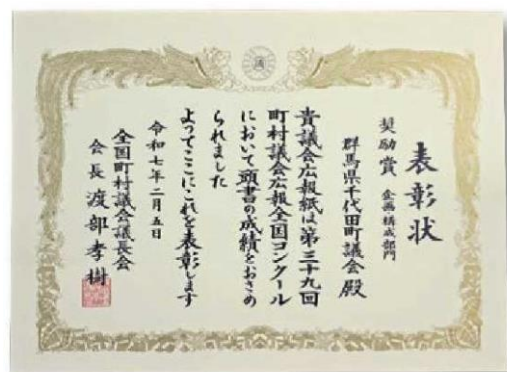 表彰状
奨励賞 企画・構成部門
群馬県千代田町議会 殿
貴議会広報紙は第三十九回
町村議会広報全国コンクール
において頭書の成績をおさめ
られました
よってここにこれを表彰します
令和七年二月五日
全国町村議会議長会
会長 渡部孝樹